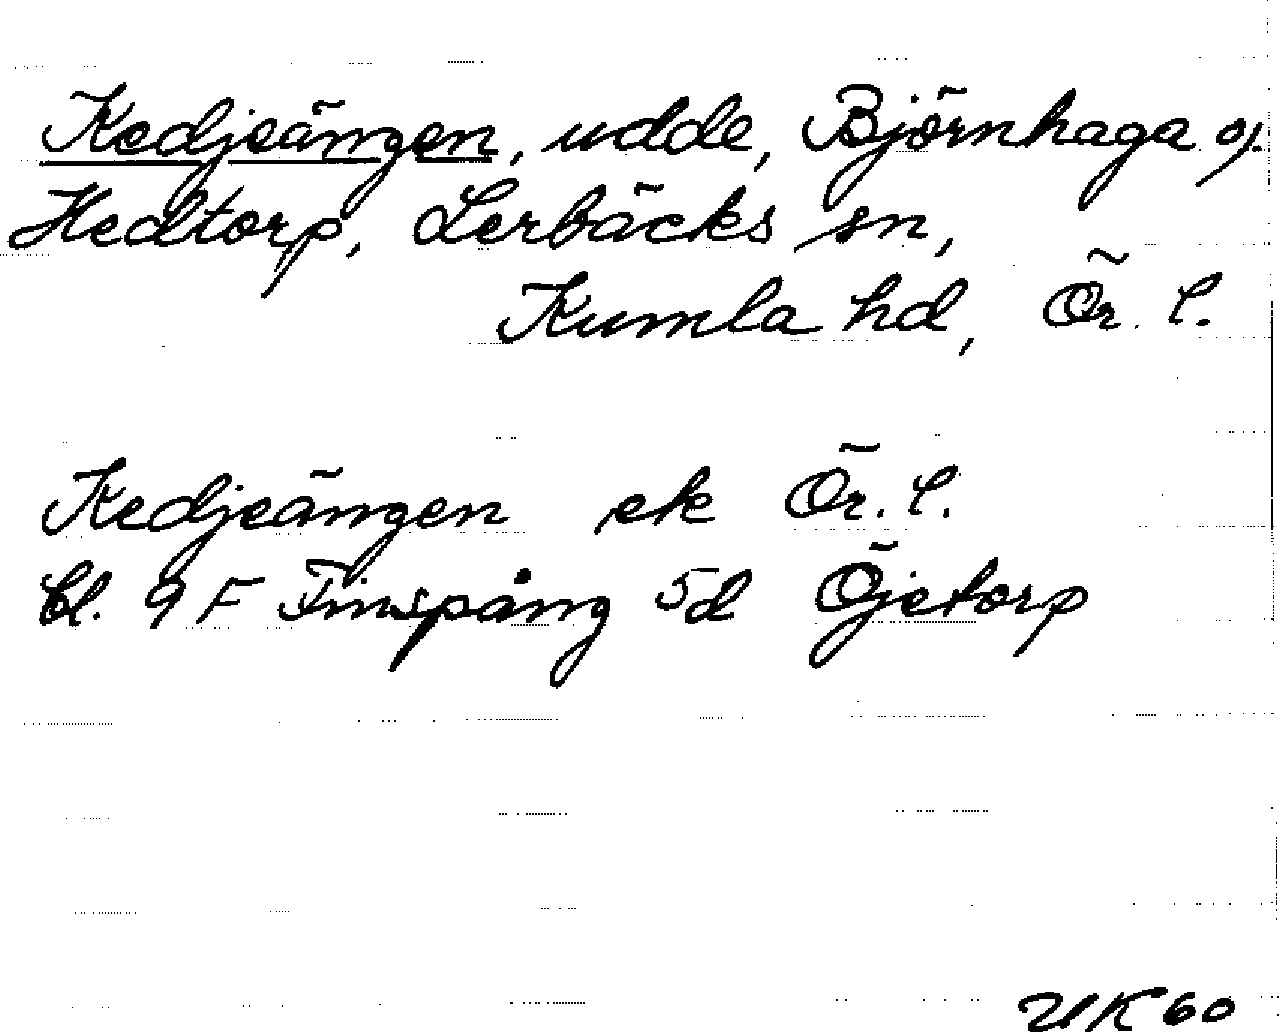 Kedjeängen, udde, Björnhaga o.
Hedtorp, Lerbäcks sn,
Kumla hd, Ör. l.
Kedjeängen ek Ör. l.
bl. 9 F Finspång 5d Öjetorp
UK 60